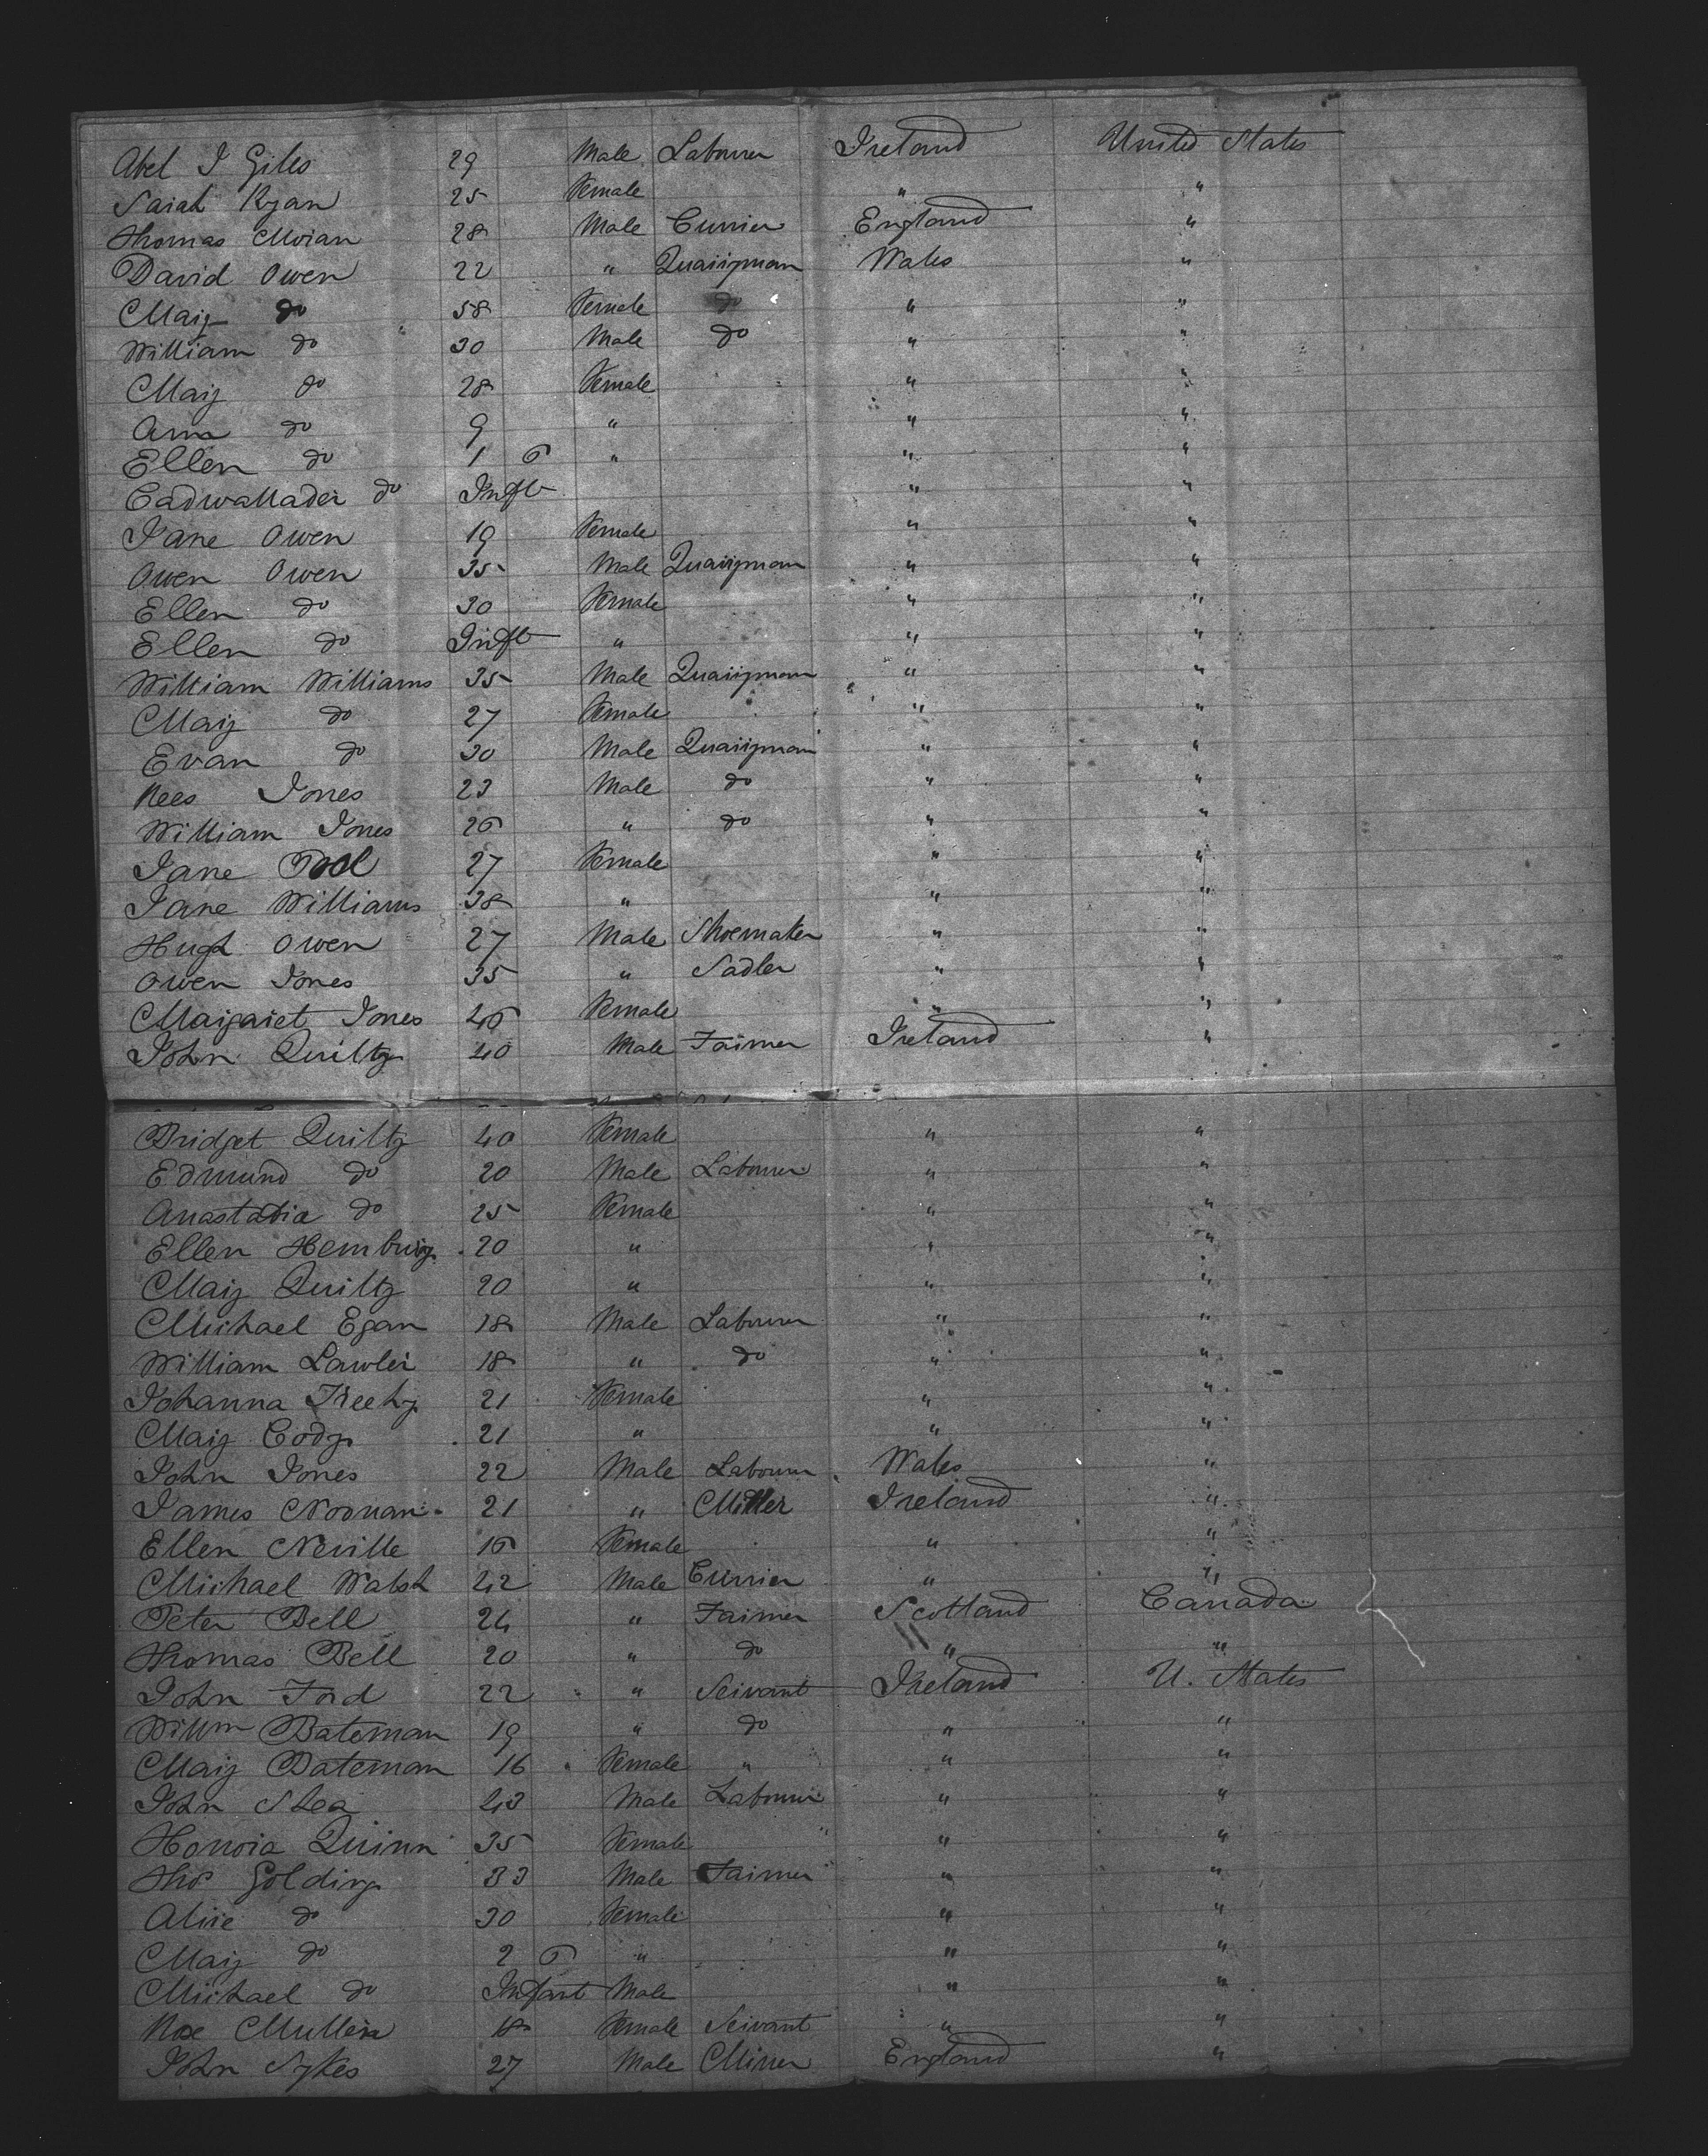 Abel J Giles 29 Male Labourer Ireland United States
Sarah Ryan 25 Female " "
Thomas Moran 28 Male Currier England "
David Owen 22 " Quarryman Wales "
Mary do 58 Female do " "
William do 30 Male do " "
Mary do 28 Female " "
Ann do 9 " " "
Ellen do 1 6 " " "
Cadwallader do Inft " "
Jane Owen 19 Female " "
Owen Owen 35 Male Quarryman " "
Ellen do 30 Female " "
Ellen do Inft " " "
William Williams 35 Male Quarryman " "
Mary do 27 Female " "
Evan do 30 Male Quarryman " "
Rees Jones 23 Male do " "
William Jones 26 " do " "
Jane 27 Female " "
Jane Williams 38 " " "
Hugh Owen 27 Male Shoemaker " "
Owen Jones 35 " Sadler " "
Margaret Jones 46 Female " "
John Quilty 40 Male Farmer Ireland "
Bridget Quilty 40 Female " "
Edmund do 20 Male Labourer " "
Anastatia do 25 Female " "
Ellen 20 " " "
Mary Quilty 20 " " "
Michael Egan 18 Male Labourer " "
William Lawler 18 " do " "
Johanna 21 Female " "
Mary Cody 21 " " "
John Jones 22 Male Labourer Wales "
James Noonan 21 " Miller Ireland "
Ellen Neville 16 Female " "
Michael Walsh 42 Male Currier " "
Peter Bell 24 " Farmer Scotland Canada
Thomas Bell 20 " do " "
John Ford 22 " Servant Ireland U. States
Willm Bateman 19 " do " "
Mary Bateman 16 Female " " "
John Shea 43 Male Labourer " "
Honora Quinn 35 Female " "
Thos Golding 33 Male Farmer " "
Alice do 30 Female " "
Mary do 2 6 " " "
Michael do Infant Male " "
Mullen 18 Female Servant " "
John Sykes 27 Male Miner England "